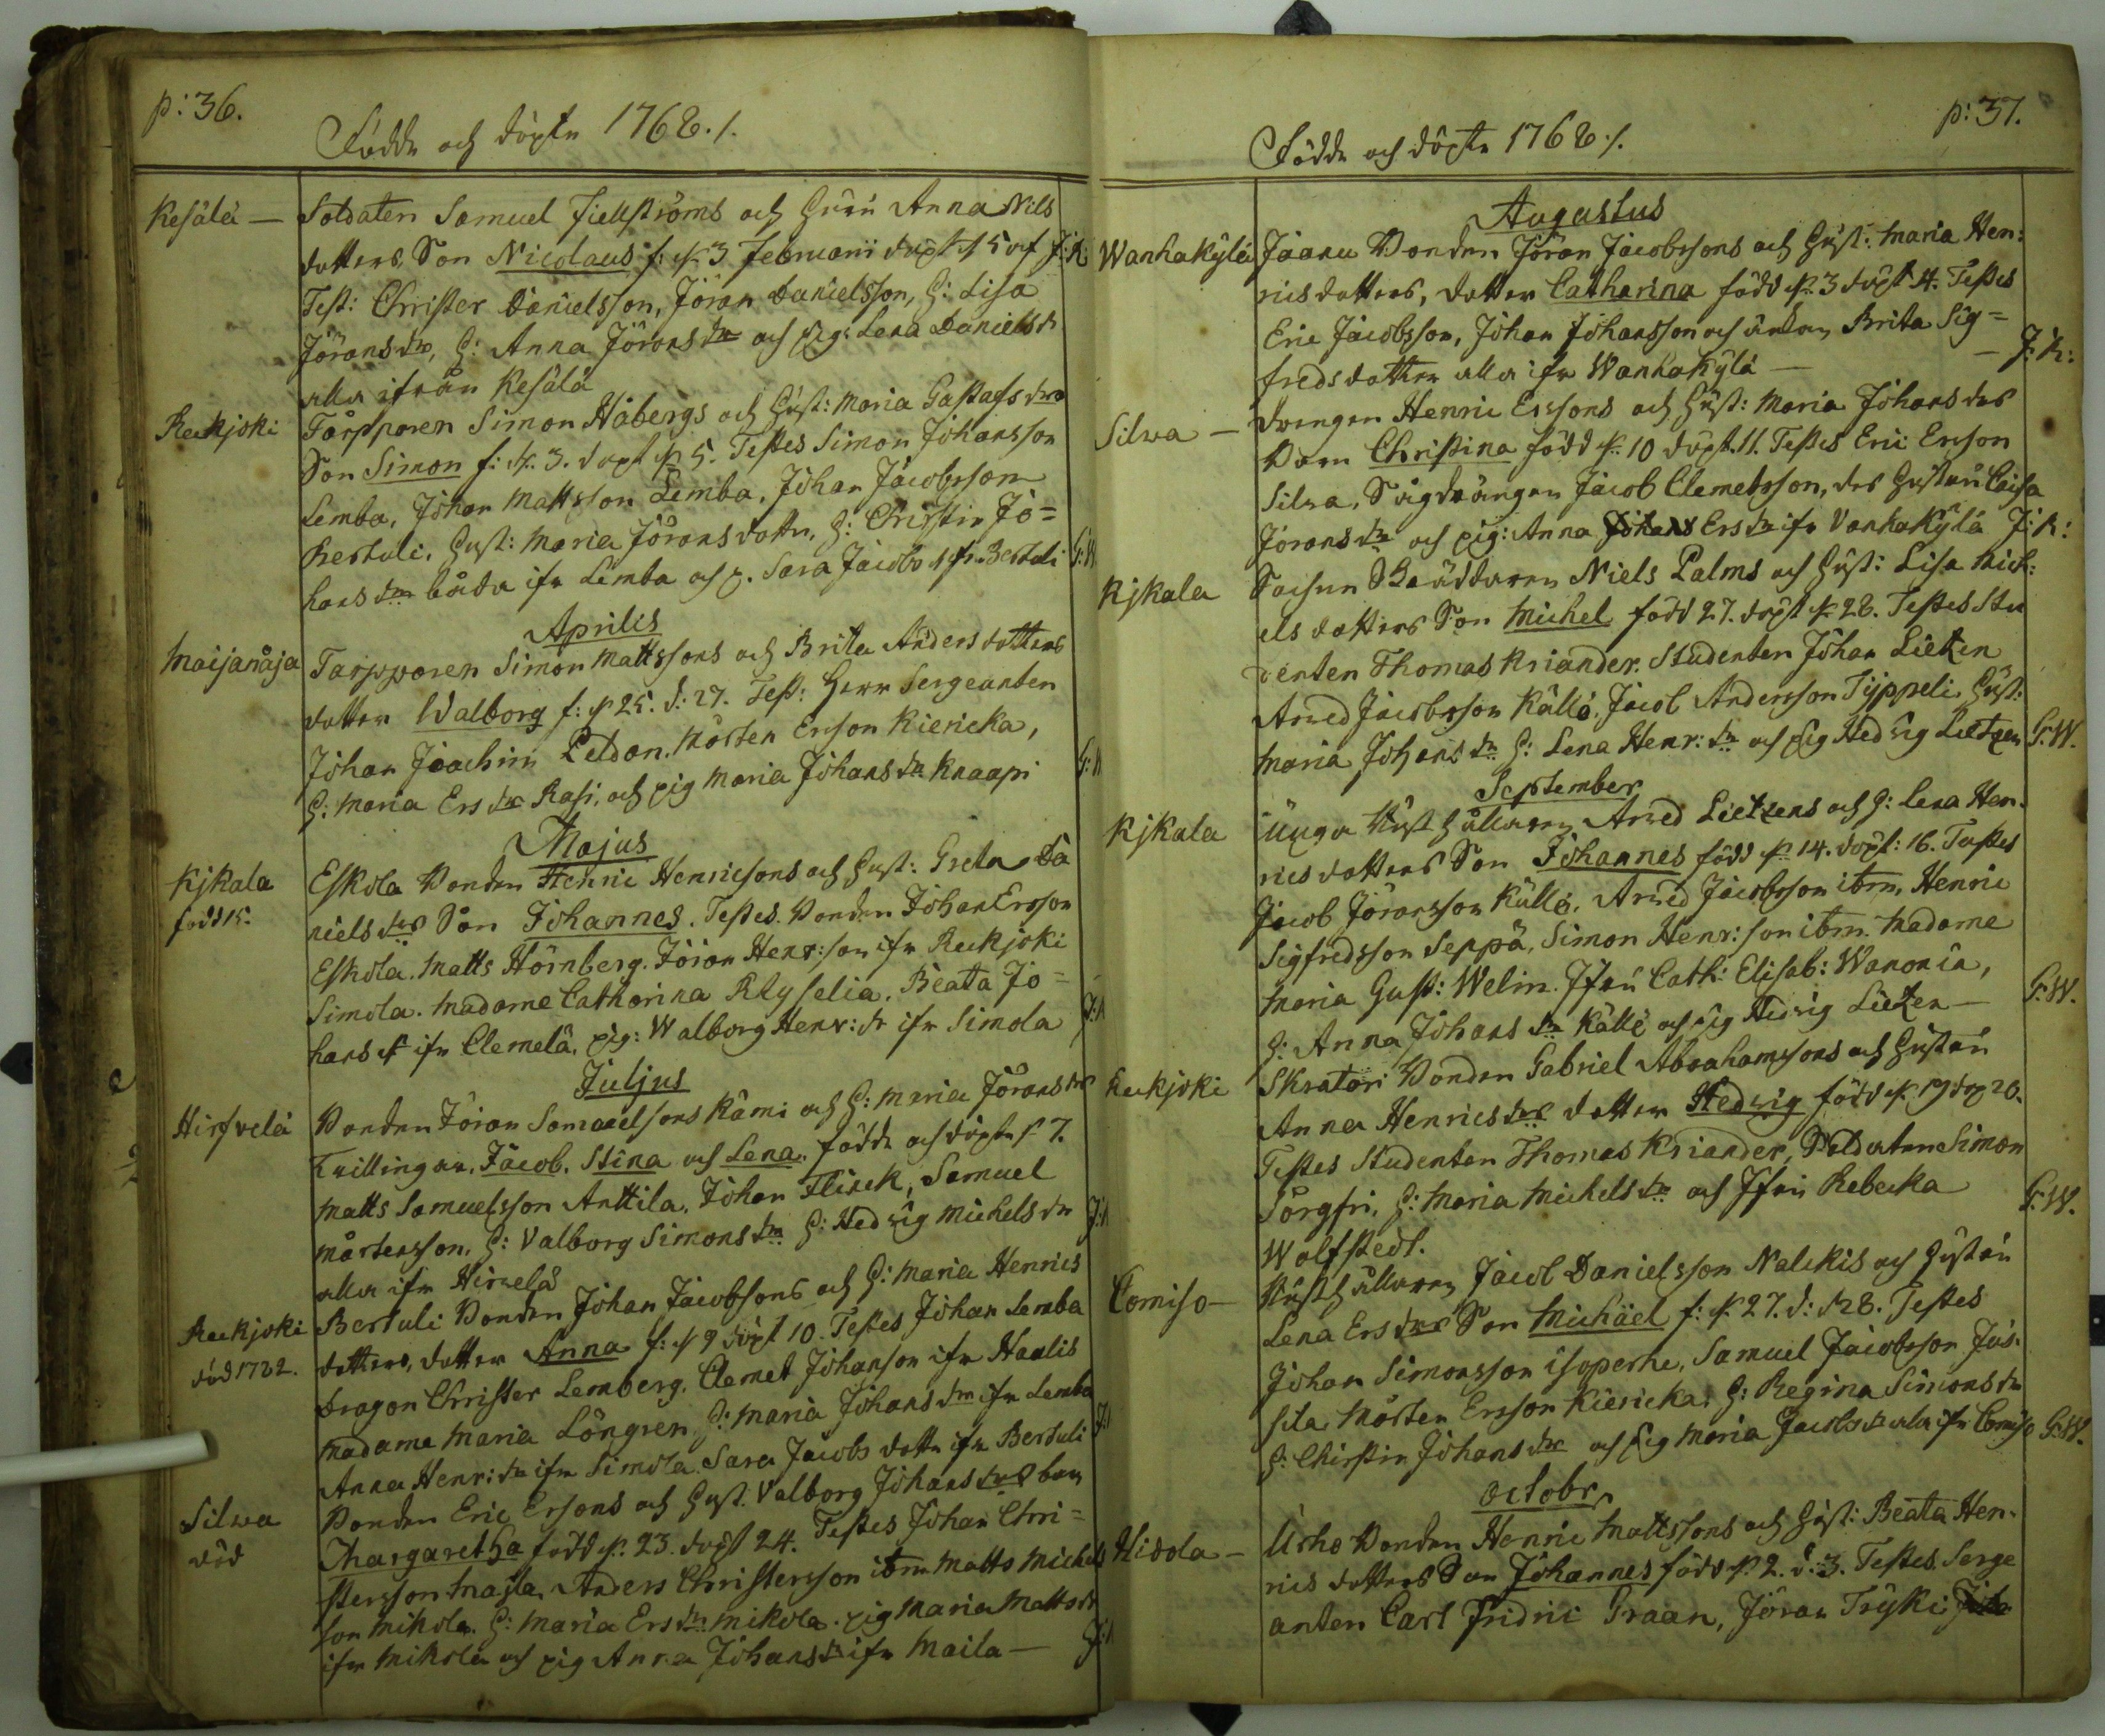 p: 36.
Födde och döpte 1768./.
Kesälä — Soldaten Samuel Fiellströms och Hust: Anna Nils
dotters Son Nicolaus f: d. 3 Februarii döpt d 5 af J:K:
Test: Christer Danielsson, Jöran Danielsson, H: Lisa
Jörans dr, H: Anna Jörans dr och pig: Lena Daniels dr
alla ifrån Kesälä
Reckjoki Torpparen Simon Håbergs och Hust: Maria Gustafs drs
Son Simon f: d. 3. döpt d 5. Testes Simon Johansson
Lemba, Johan Mattsson Lemba, Johan Jacobsson
Bertuli, Hust: Maria Jörans dotter, H: Christin Jo=
hans dr båda ifr Lemba och p. Sara Jacobs d fr. Bertuli
Aprilis
Maijanåja Torpparen Simon Mattssons och Brita Anders dotters
dotter Walborg f: d 25. d: 27. Test: Herr Sergeanten
Johan Joachim Peldan, Mårten Erson Kiericka,
H: Maria Ers dr Rasi, och pig Maria Johans dr Knaapi
Majus
Kjkala Eskola Bonden Henric Henricsons och Hust: Greta Da
född 15. niels drs Son Johannes. Testes. Bonden Johan Ersson
Eskola. Matts Hörnberg. Jöran Henr: son ifr Reckjoki
Simola. Madame Catharina Rlyselia. Beata Jo=
hans dr ifr Clemelä, pig: Walborg Henr: dr ifr Simola
Juljus
Hirfvelä Bonden Jöran Samuelsons Kämi och H: Maria Jörans drs
Trillingar, Jacob, Stina och Lena, födde och döpte d 7.
Matts Samuelsson Anttila, Johan Flinck, Samuel
Mårtensson, H: Valborg Simons dr H: Hedvig Michels dr
alla ifr Hirvelä
Reckjoki Bertuli Bonden Johan Jacobsons och H: Maria Henrics
död 1782. dotters, dotter Anna f: d 9 döpt 10. Testes Johan Lemba
Dragon Christer Lemberg. Clemet Johanson ifr Haalis
Madame Maria Löngren, H: Maria Johans dr ifr Lemba
Anna Henr: dr ifr Simola. Sara Jacobs dotter ifr Bertuli
Silwa Bonden Eric Ersons och Hust. Valborg Johans drs barn
död Margaretha född d. 23. döpt 24. Testes Johan Chri=
stersson Majla, Anders Christersson ibm Matts Michels
son Mikola. H: Maria Ers dr Mikola. pig Maria Matts dr
ifr Mikola och pig Anna Johans dr ifr Maila —
p: 37.
Födde och döpte 1768./.
Augustus
Wanhakylä Jaanu Bonden Jöran Jacobssons och Hust: Maria Hen:
rics dotters, dotter Catharina född d. 3 döpt 4. Testes
Eric Jacobsson, Johan Johansson och änkan Brita Sig=
freds dotter alla ifr Wanhakylä — J:K:
Silwa — Drengen Henric Erssons och Hust: Maria Johans drs
Barn Christina född d. 10 döpt. 11. Testes Eric Erson
Silwa, Sågdrängen Jacob Clemetsson, des Hustru Caisa
Jörans dr och pig: Anna Ers dr ifr Vanhakylä J:K:
Kjkala Niels Palms och Hust: Lisa Mich:
els dotters Son Michel född 27. döpt d. 28. Testes Stu
denten Thomas Kriander. Studenten Johan Lietzen
Arvid Jacobsson Källö, Jacob Andersson Typpeli, Hust:
Maria Johans dr H: Lena Henr: dr och pig Hedvig Lietzen G:W.
September
Kjkala unga Rusthållaren Arvid Lietzens och H: Lena Hen.
rics dotters Son Johannes född d. 14. döpt: 16. Testes
Jacob Jöransson Källö, Arvid Jacobsson ibm, Henric
Sigfredsson Seppä, Simon Henr: son ibm. Madame
Maria Gust: Welin. Jfru Cath: Elisab: Wanonia,
H: Anna Johans dr Källö och pig Hedvig Lietzen — G:W.
Reckjoki Skratari Bonden Gabriel Abrahamsons och Hustru
Anna Henrics drs dotter Hedvig född d. 19 döp 20.
Testes Studenten Thomas Kriander, Soldaten Simon
Sorgfri, H: Maria Michels dr och Jfru Rebecka G:W.
Wolfstedt.
Comiso — Rusthållaren Jacob Danielsson Nalckis och Hustru
Lena Ers drs Son Michäel f: d. 27. d: d 28. Testes
Johan Simonsson isoperhe, Samuel Jacobsson Jus.
sila Mårten Ersson Kiericka, H: Regina Simons dr
H: Christin Johans dr och pig Maria Jacobs dr alla ifr Comiso G:W.
Octobr
Hidola — Urho Bonden Henric Mattssons och Hust: Beata Hen.
rics dotters Son Johannes född d. 2. d: 3. Testes. Serge
anten Carl Fridric Graan, Jöran Tryki